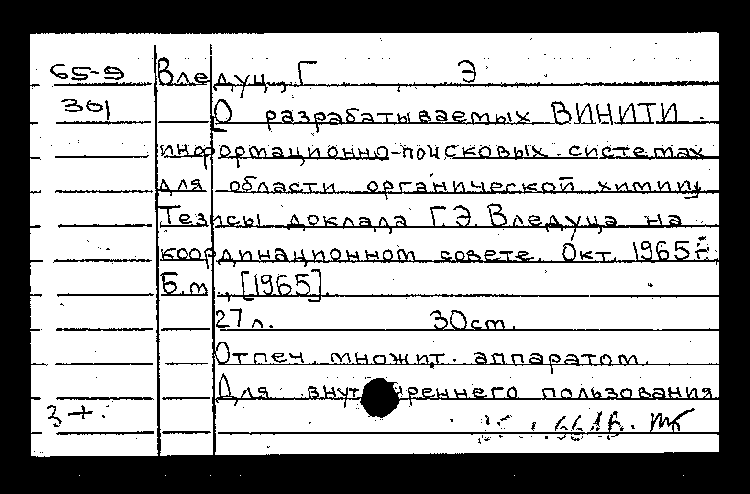 65-9 Вледуц, Г Э
301 О разрабатываемых ВИНИТИ
информационно-поисковых системах
для области органической химии
Тезисы доклада Г.Э. Вледуца на
координационном совете. Окт 1965 г.
Б.м., [1965].
27 л. 30 см.
Отпеч. множит. аппаратом.
Для внутреннего пользования
3 +.